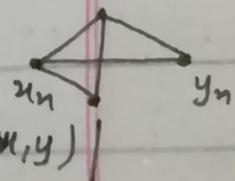 xn yn
x,y)